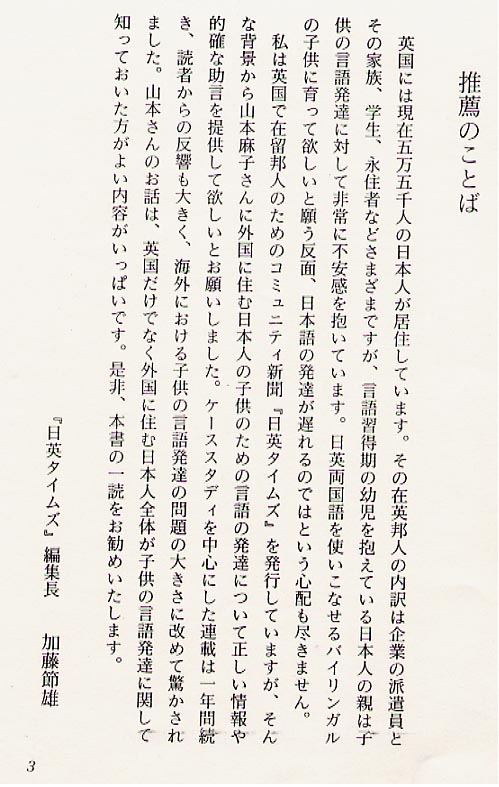 推薦のことば
英国には現在五万五千人の日本人が居住しています。その在英邦人の内訳は企業の派遣員と
その家族、学生、永住者などさまざまですが、言語習得期の幼児を抱えている日本人の親は子
供の言語発達に対して非常に不安感を抱いています。日英両国語を使いこなせるバイリンガル
の子供に育って欲しいと願う反面、日本語の発達が遅れるのではという心配も尽きません。
私は英国で在留邦人のためのコミュニティ新聞『日英タイムズ』を発行していますが、そん
な背景から山本麻子さんに外国に住む日本人の子供のための言語の発達について正しい情報や
的確な助言を提供して欲しいとお願いしました。ケーススタディを中心にした連載は一年間続
き、読者からの反響も大きく、海外における子供の言語発達の問題の大きさに改めて驚かされ
ました。山本さんのお話は、英国だけでなく外国に住む日本人全体が子供の言語発達に関して
知っておいた方がよい内容がいっぱいです。是非、本書の一読をお勧めいたします。
『日英タイムズ』編集長 加藤節雄
3